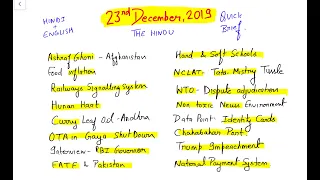 HINDI
+
ENGLISH
23rd December, 2019
THE HINDU
Quick
Brief
Ashraf Ghani - Afghanistan
Food inflation
Railways Signalling System
Hunar Haat
Curry Leaf Oil - Andhra
OTA in Gaya Shut Down
Interview - RBI Governor
FATF & Pakistan
Hard and Soft Schools
NCLAT - Tata - Mistry Tussle
WTO - Dispute adjudication
Non toxic News Environment
Data Point - Identity Cards
Chabahar Port
Trump Impeachment
National Payment System